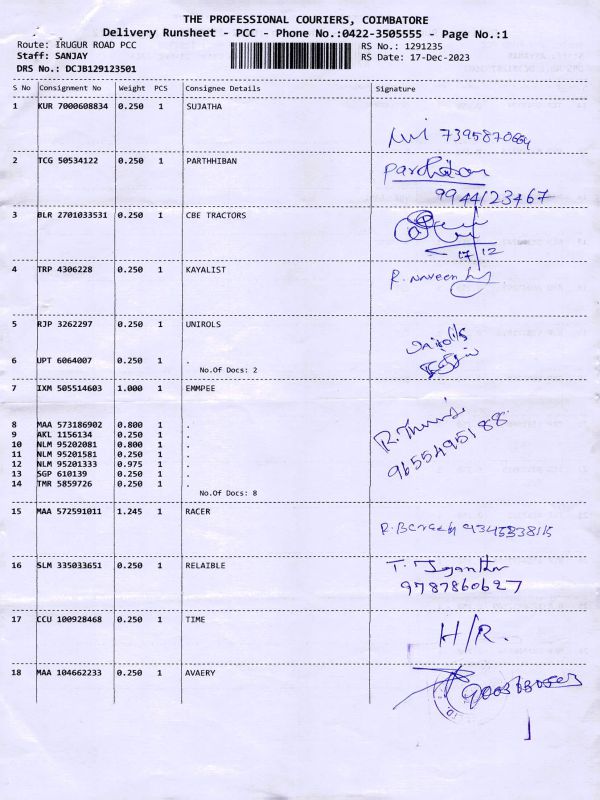 THE PROFESSIONAL COURIERS, COIMBATORE
Delivery Runsheet - PCC - Phone No.:0422-3505555 - Page No.:1
Route: IRUGUR ROAD PCC RS No.: 1291235
Staff: SANJAY RS Date: 17-Dec-2023
DRS No.: DCJB129123501
S No Consignment No Weight PCS Consignee Details Signature
1 KUR 7000608834 0.250 1 SUJATHA
7395870664
2 TCG 50534122 0.250 1 PARTHHIBAN
Parthiban
9944123467
3 BLR 2701033531 0.250 1 CBE TRACTORS
17/12
4 TRP 4306228 0.250 1 KAYALIST
R. Naveen
5 RJP 3262297 0.250 1 UNIROLS
Unirolls
6 UPT 6064007 0.250 1 .
No.Of Docs: 2
7 IXM 505514603 1.000 1 EMMPEE
8 MAA 573186902 0.800 1 .
9 AKL 1156134 0.250 1 .
10 NLM 95202081 0.800 1 .
11 NLM 95201581 0.250 1 .
12 NLM 95201333 0.975 1 .
13 SGP 610139 0.250 1 .
14 TMR 5859726 0.250 1 .
No.Of Docs: 8
9655495188
15 MAA 572591011 1.245 1 RACER
16 SLM 335033651 0.250 1 RELAIBLE
9787860627
17 CCU 100928468 0.250 1 TIME
H/R.
18 MAA 104662233 0.250 1 AVAERY